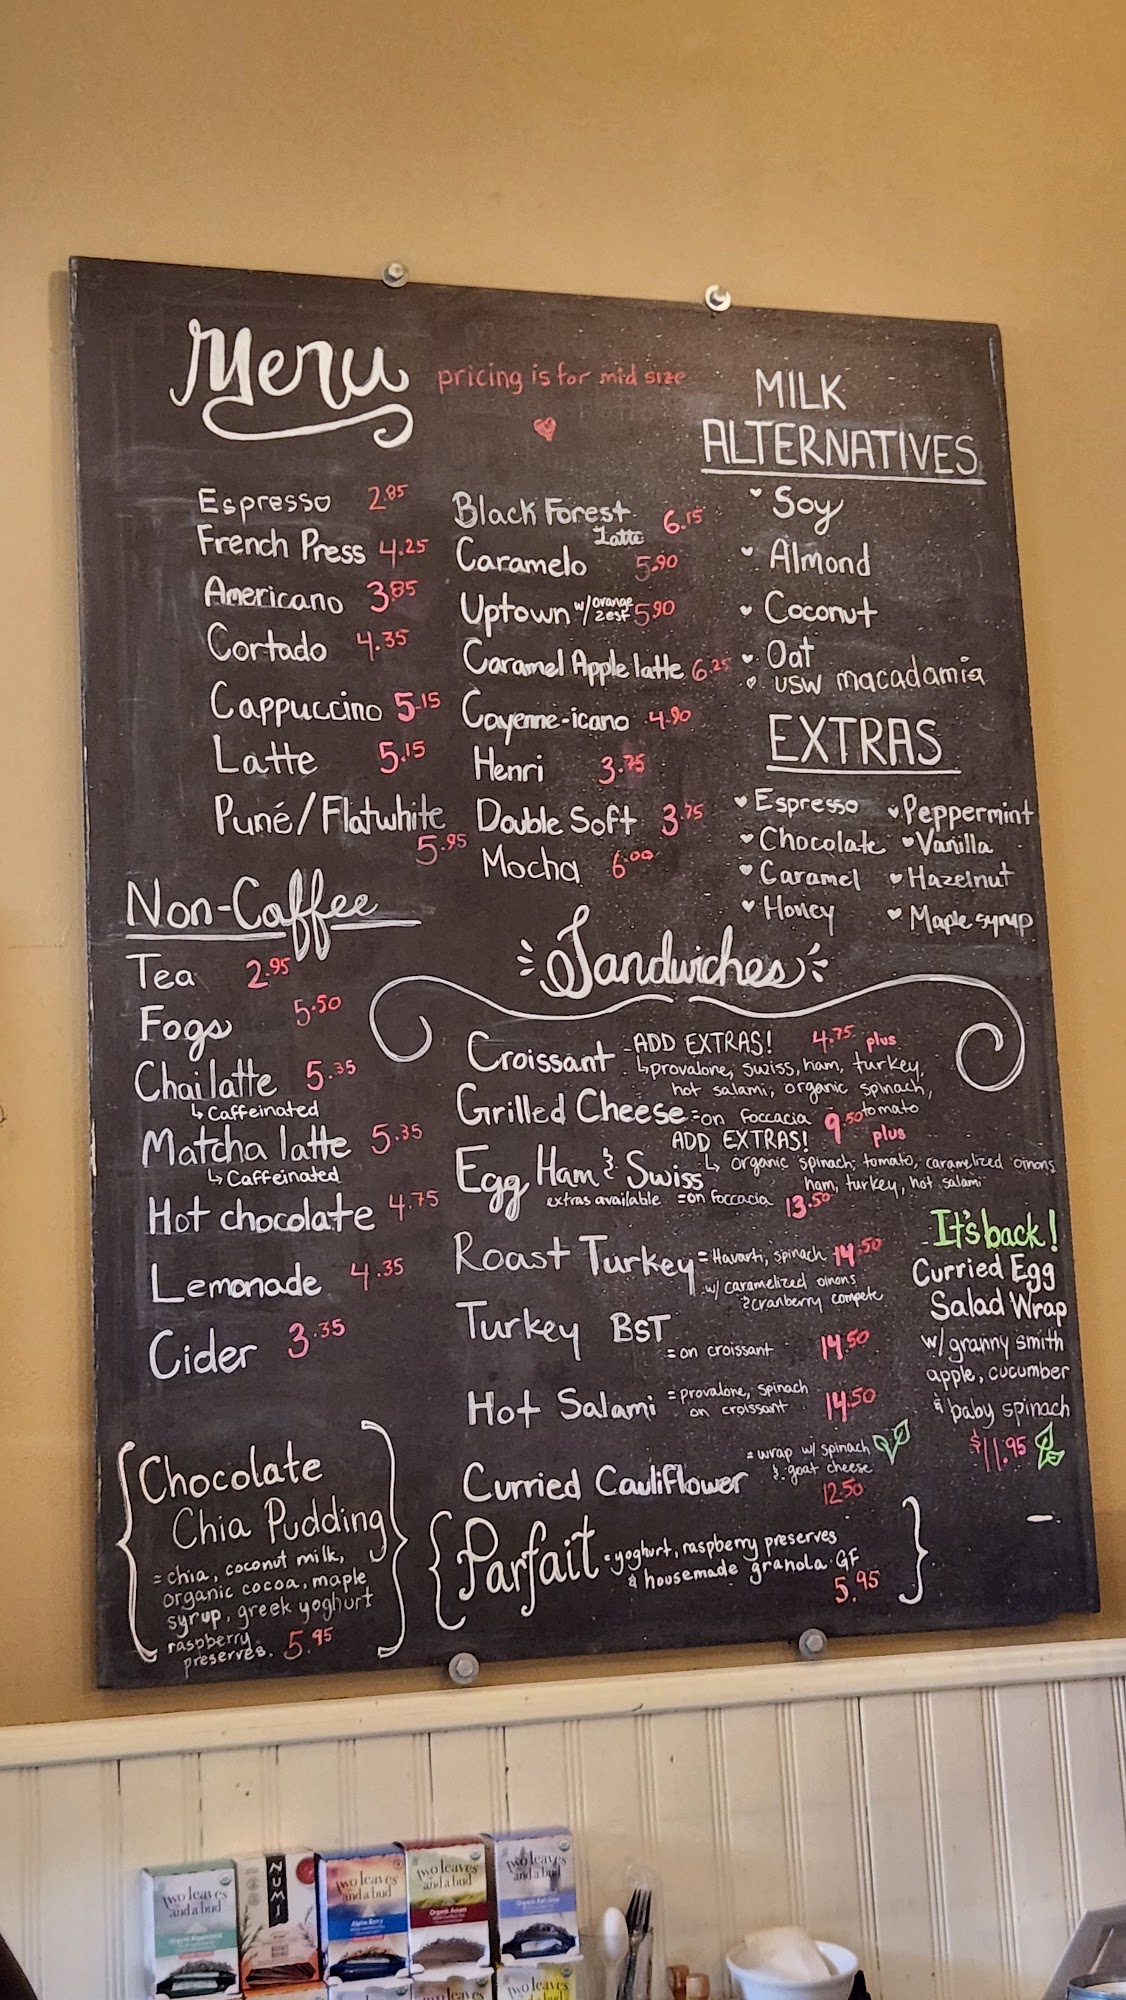 Menu
pricing is for mid size
Espresso 2.85
French Press 4.25
Americano 3.85
Cortado 4.35
Cappuccino 5.15
Latte 5.15
Puné/Flatwhite
5.95
Black Forest 6.15
Latte
Caramelo 5.90
Uptown w/ orange zest 5.90
Caramel Apple latte 6.25
Cayenne-icano 4.90
Henri 3.75
Double Soft 3.75
Mocha 6.00
MILK
ALTERNATIVES
Soy
Almond
Coconut
Oat
USW macadamia
EXTRAS
Espresso
Chocolate
Caramel
Honey
Peppermint
Vanilla
Hazelnut
Maple syrup
Non-Caffee
Tea 2.95
Fogs 5.50
Chai latte 5.35
↳ Caffeinated
Matcha latte 5.35
↳ Caffeinated
Hot chocolate 4.75
Lemonade 4.35
Cider 3.35
Sandwiches
Croissant - ADD EXTRAS! 4.75 plus
↳ provalone, swiss, ham, turkey,
hot salami, organic spinach,
tomato
Grilled Cheese = on foccacia 9.50
ADD EXTRAS! plus
↳ organic spinach, tomato, caramelized oinons
ham, turkey, hot salami
Egg Ham & Swiss
extras available = on foccacia 13.50
Roast Turkey = Havarti, spinach 14.50
w/ caramelized oinons
& cranberry compete
Turkey BST
= on croissant 14.50
Hot Salami = provalone, spinach 14.50
on croissant
Curried Cauliflower = wrap w/ spinach
& goat cheese
12.50
It's back!
Curried Egg
Salad Wrap
w/ granny smith
apple, cucumber
& baby spinach
$11.95
Chocolate
Chia Pudding
= chia, coconut milk,
organic cocoa, maple
syrup, greek yoghurt
raspberry
preserves. 5.95
Parfait = yoghurt, raspberry preserves
& housemade granola GF
5.95
two leaves
and a bud
Organic Peppermint
NUMI
two leaves
and a bud
Alpine Berry
two leaves
and a bud
Organic Assam
two leaves
and a bud
Organic Earl Grey
two leaves